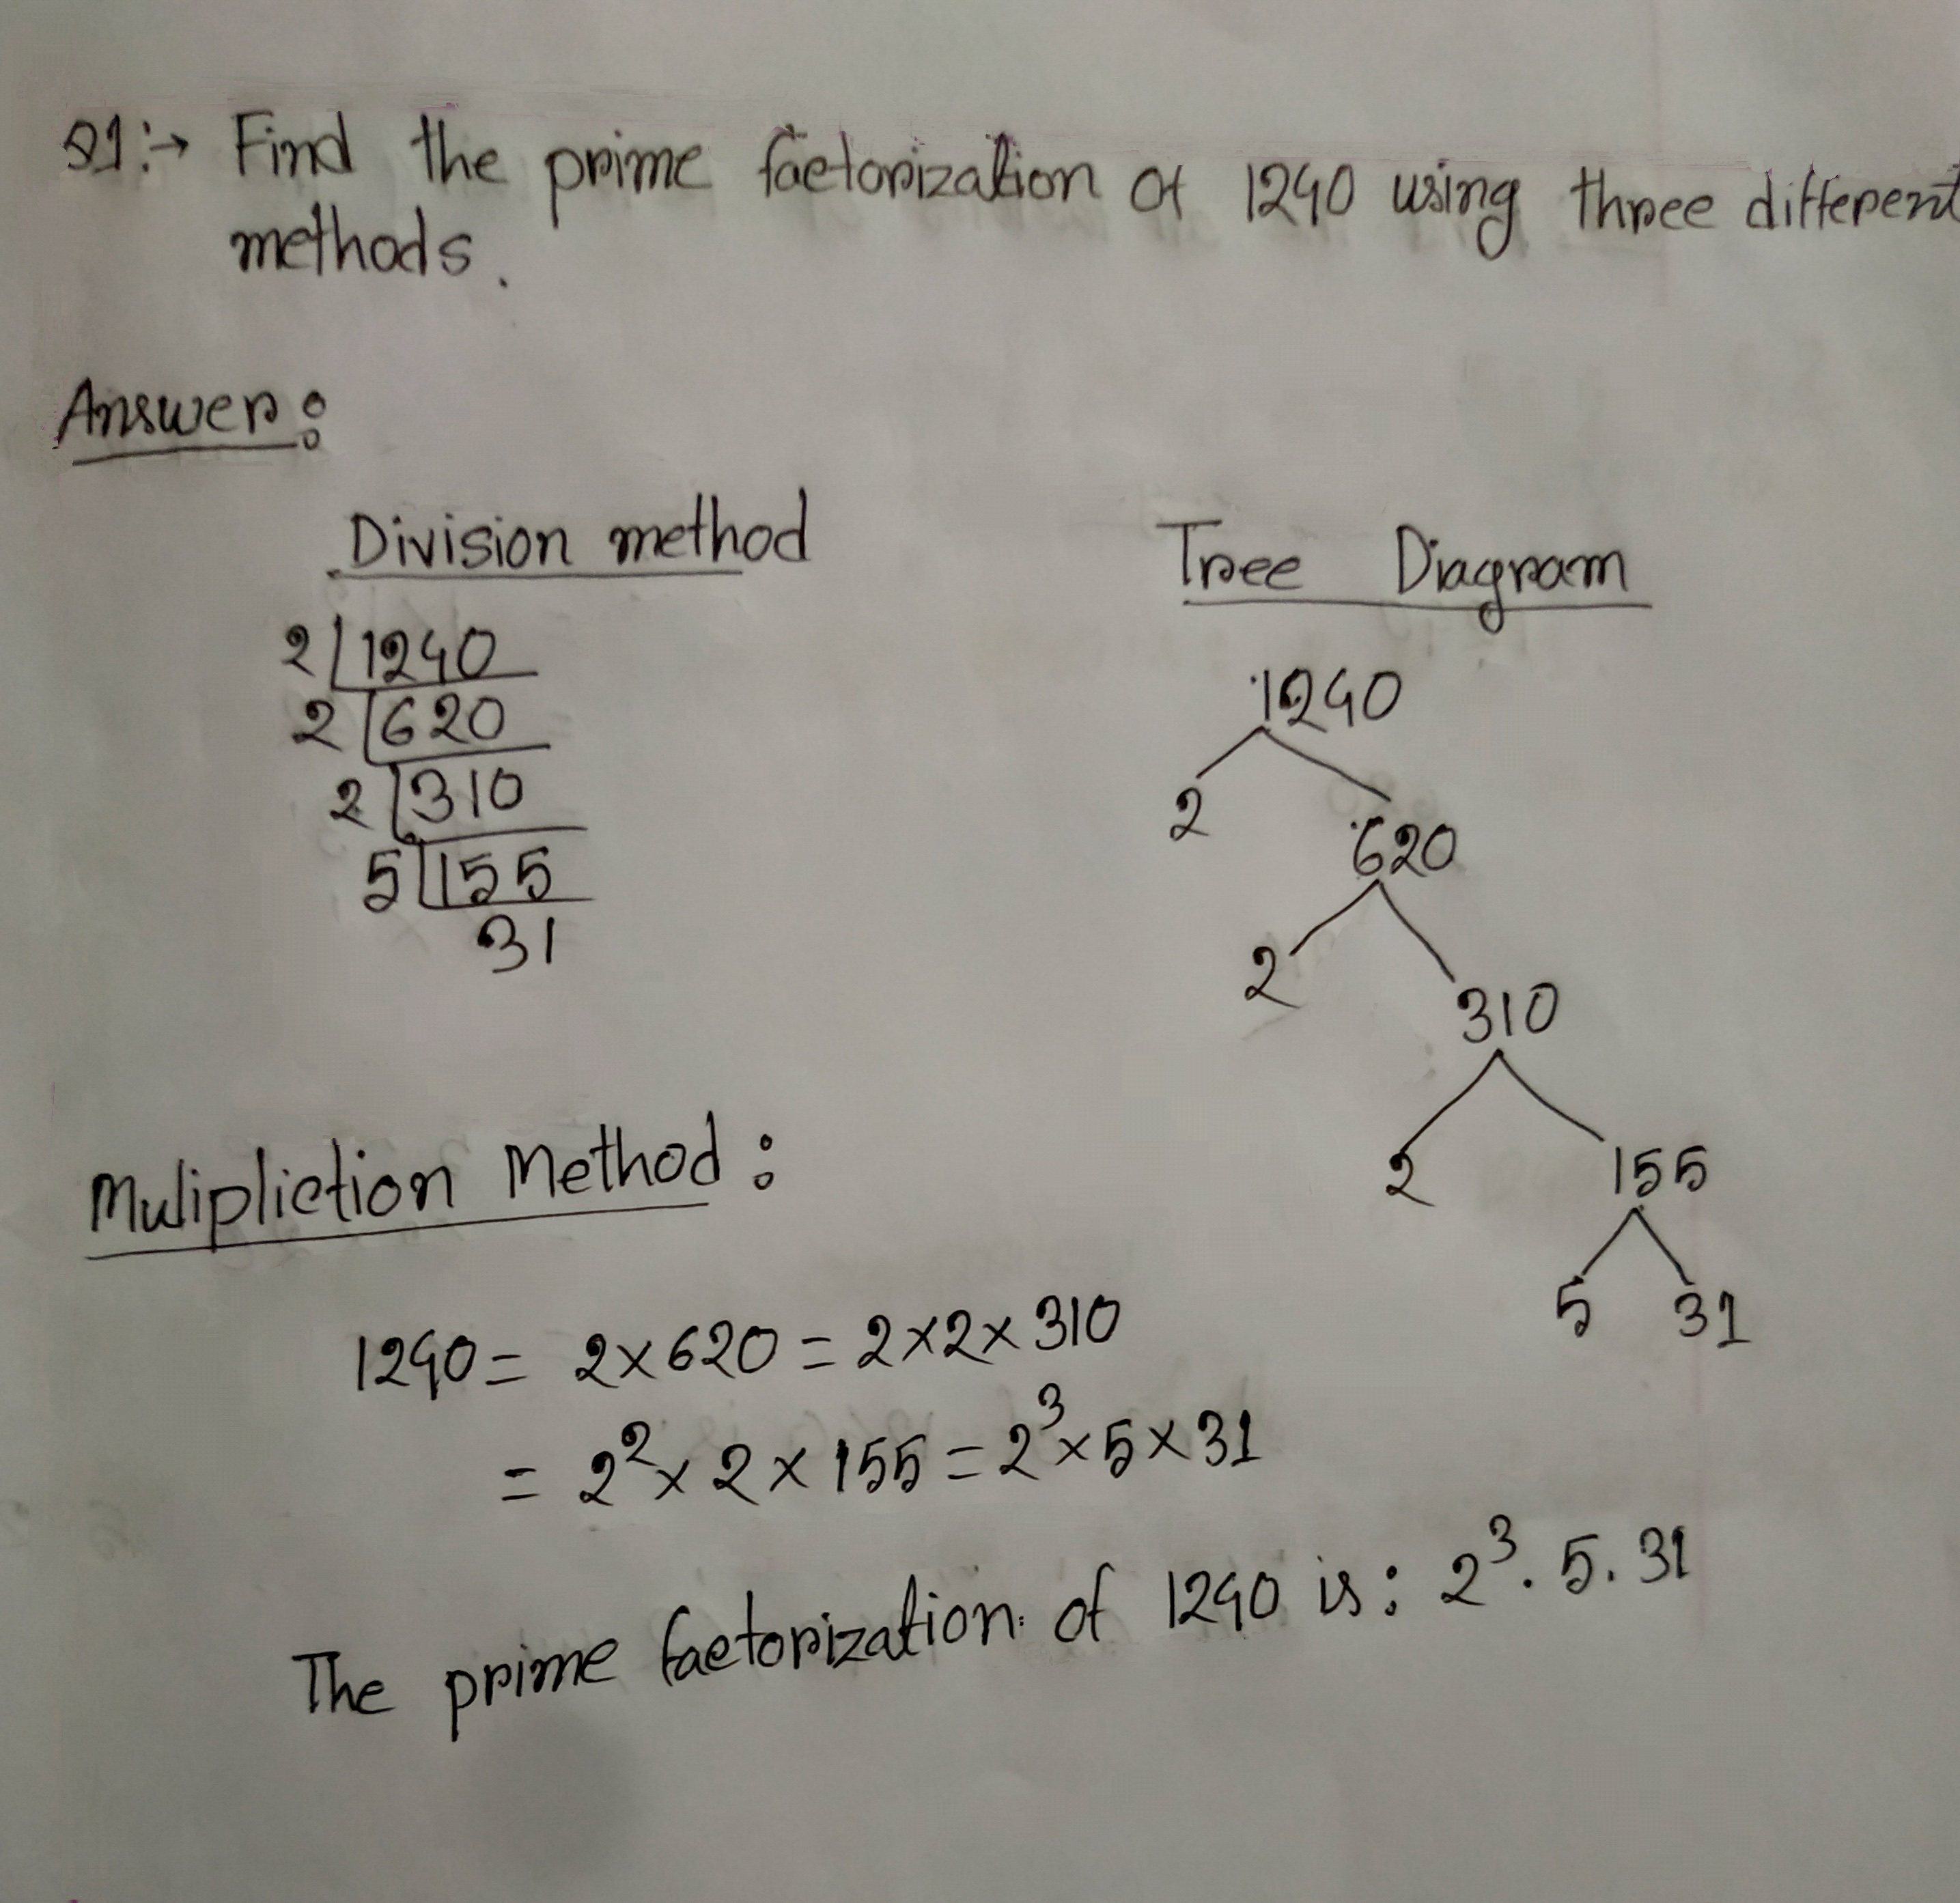 Q1:→ Find the prime factorization of 1240 using three different
methods.
Answer:
Division method
2 | 1240
2 | 620
2 | 310
5 | 155
31
Tree Diagram
1240
2 620
2 310
2 155
5 31
Mulipliction Method:
1240 = 2×620 = 2×2×310
= 2²×2×155 = 2³×5×31
The prime factorization of 1240 is: 2³. 5. 31